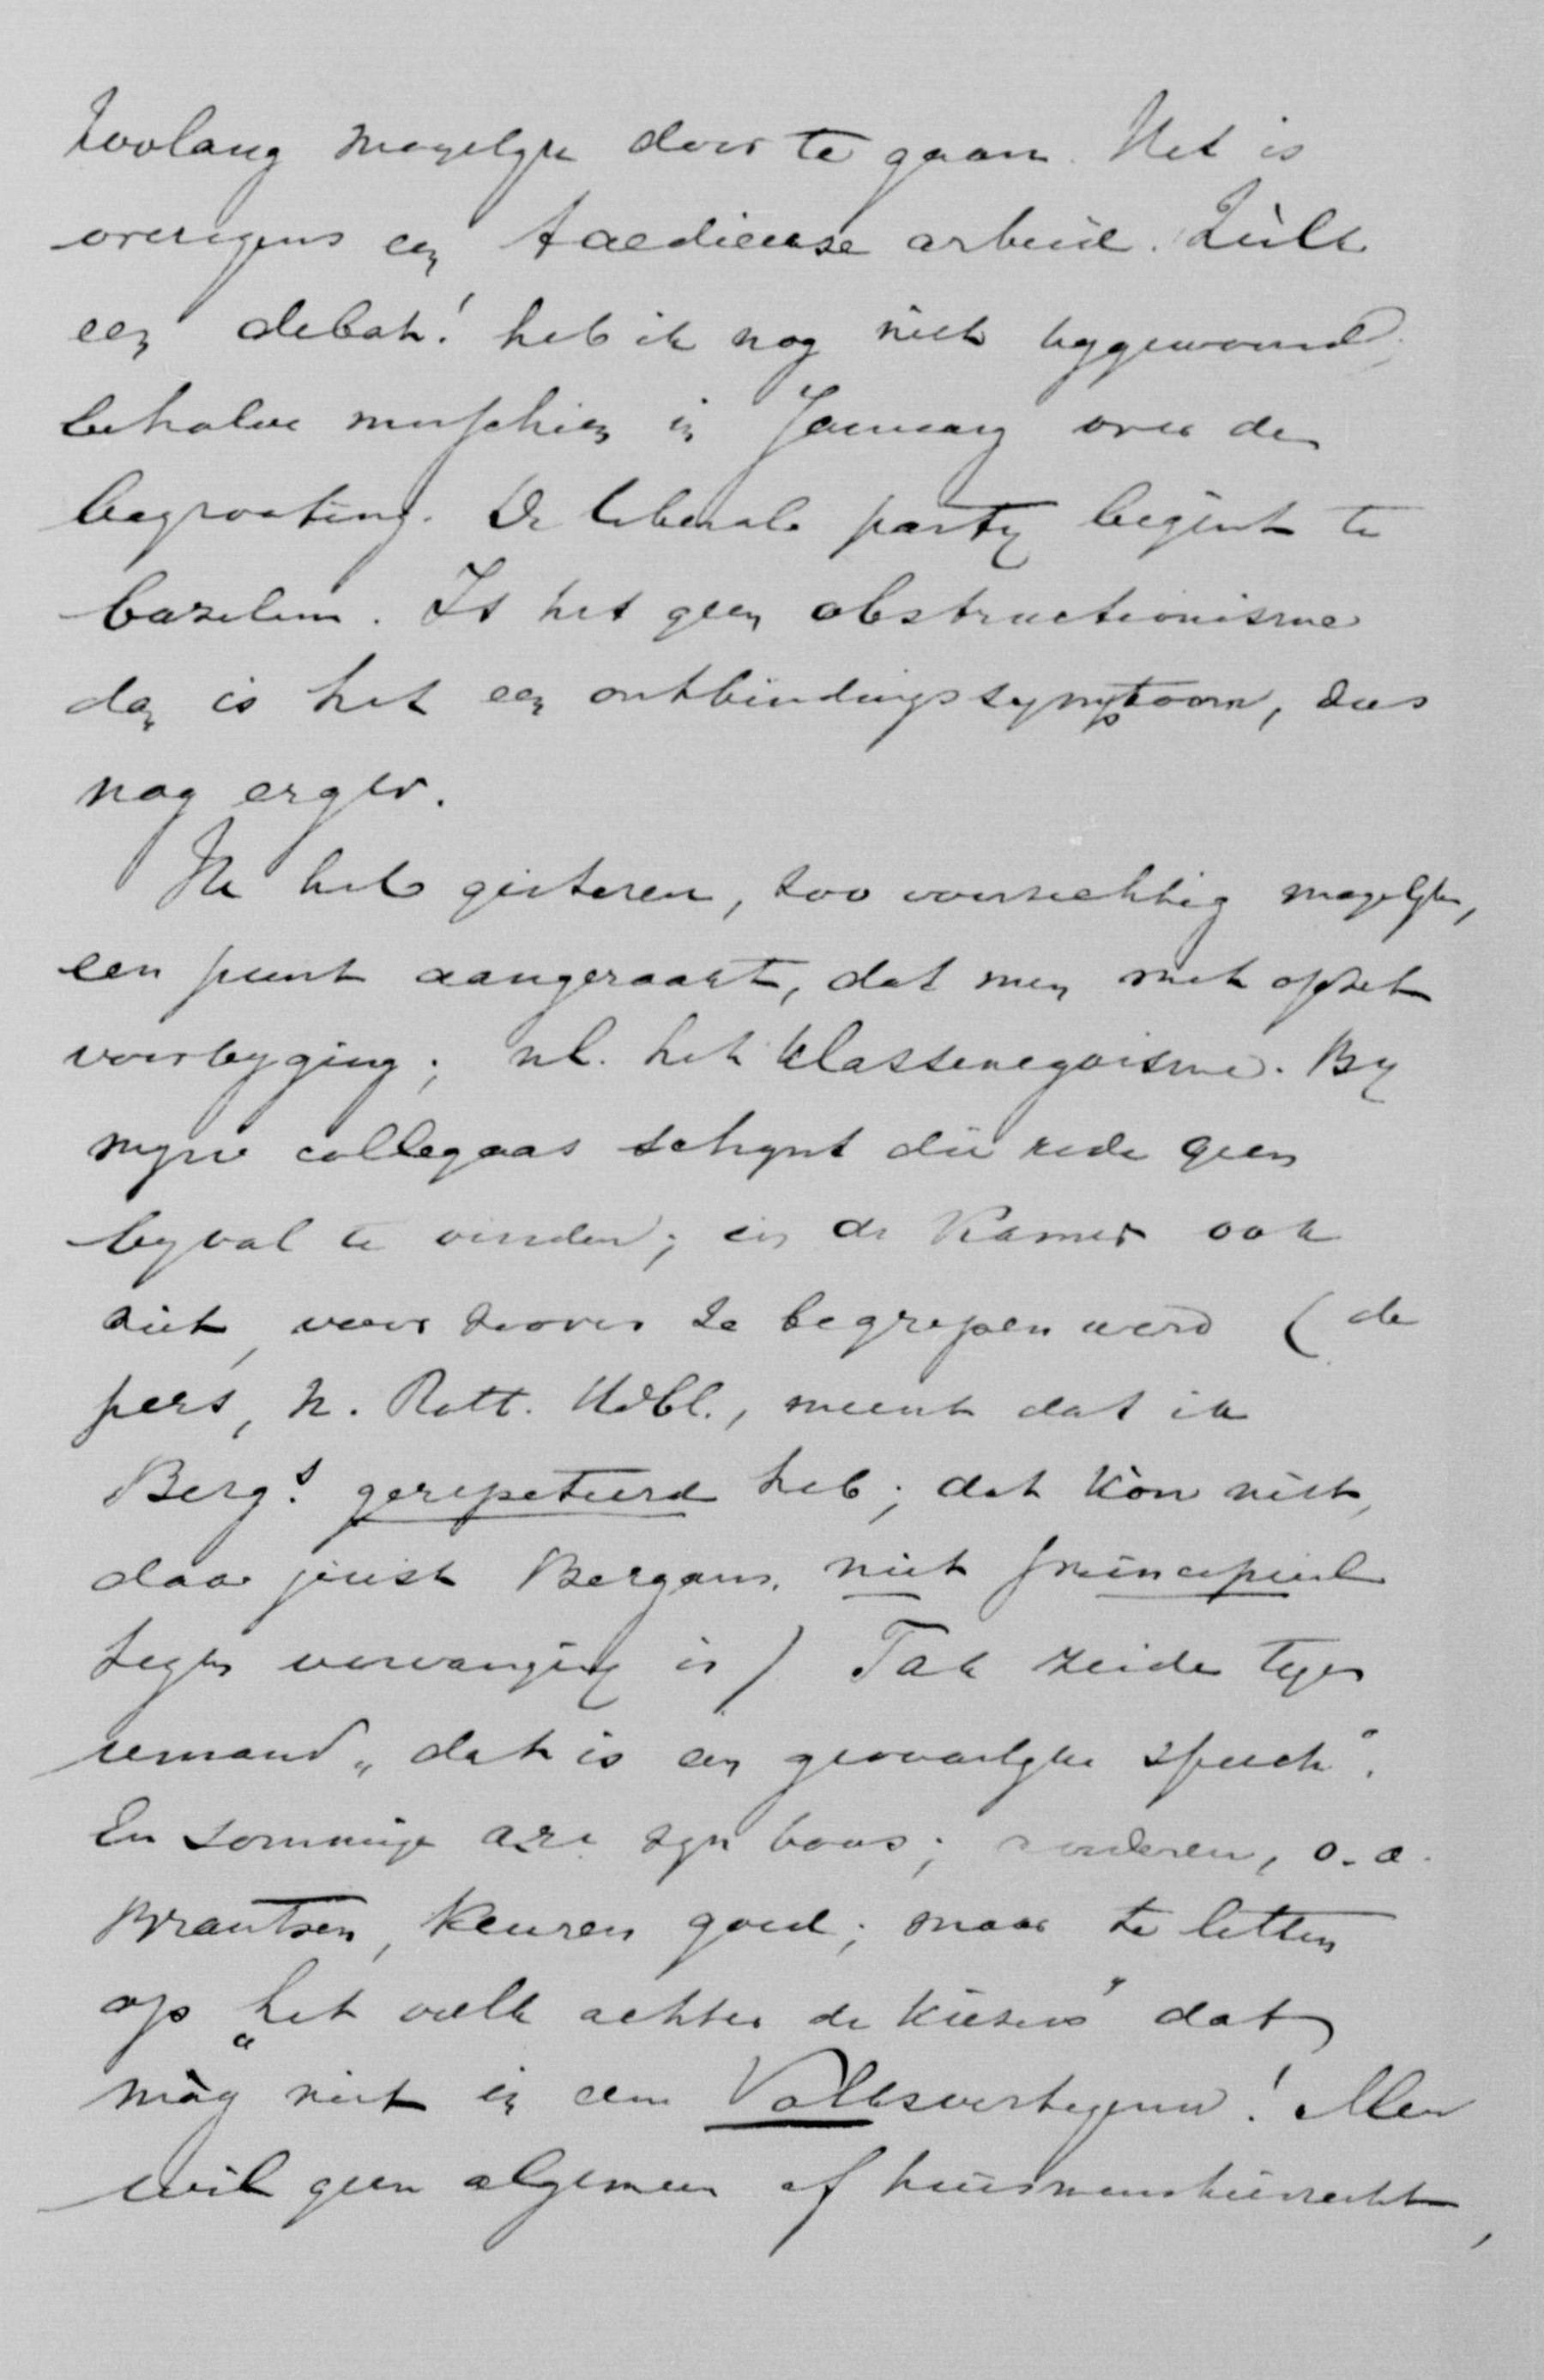 zoolang mogelyk door te gaan. Het is
overigens een taedieuse arbeid. Zùlk
een debat! heb ik nog niet bygewoond,
behalve misschien in January over de
begrooting. De liberale party begint te
bazelen. Is het geen obstructionisme
dan is het een ontbindingssymptoom, dus
nog erger.
Ik heb gisteren, zoo voorzichtig mogelyk,
een punt aangeraakt, dat men met opzet
voorbyging; nl. het klassenegoisme. By
myne collegaas schynt die rede geen
byval te vinden; in de Kamer ook
niet, voor zoover ze begrepen werd (de
pers, N. Rott. Udbl., meent dat ik
Berg.s gerepeteerd heb; dat kòn niet,
daar juist Bergans. niet principieel
tegen vervanging is) Tak zeide tegen
iemand „dat is een gevaarlyke speech".
En sommige a.r.e zyn boos; anderen, o.a.
Brantsen, keuren goed; maar te letten
op „het volk achter de kiezers" dat
màg niet in een Volksvertegenw.! Men
wil geen algemeen of huismanskiesrecht,